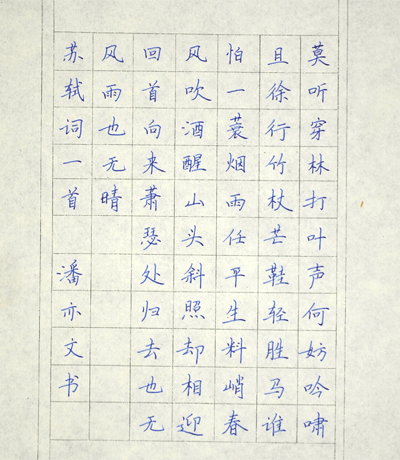 莫听穿林打叶声何妨吟啸
且徐行竹杖芒鞋轻胜马谁
怕一蓑烟雨任平生料峭春
风吹酒醒山头斜照却相迎
回首向来萧瑟处归去也无
风雨也无晴
苏轼词一首 潘亦文书